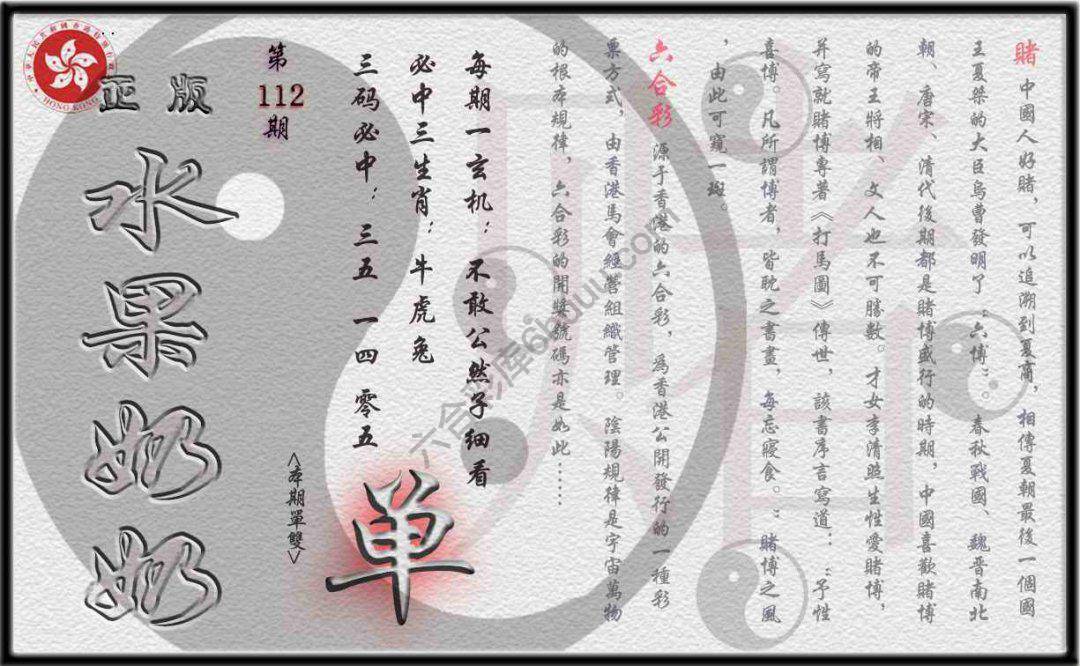 賭 中國人好賭，可以追溯到夏商，相傳夏朝最後一個國
王夏桀的大臣烏曹發明了“六博”。春秋戰國、魏晋南北
朝、唐宋、清代後期都是賭博盛行的時期，中國喜歡賭博
的帝王將相、文人也不可勝數。才女李清照生性愛賭博，
并寫就賭博專著《打馬圖》傳世，該書序言寫道：“予性
喜博。凡所謂博者，皆耽之晝晝，每忘寢食。”賭博之風
，由此可窺一斑。
六合彩 源于香港的六合彩，為香港公開發行的一種彩
票方式，由香港馬會經營組織管理。陰陽規律是宇宙萬物
的根本規律，六合彩的開獎號碼亦是如此……
每期一玄机：不敢公然子细看
必中三生肖：牛虎兔
三码必中：三五 一四 零五
单
<本期單雙>
第
112
期
正版
水果奶奶
HONG KONG
六合彩库6huuu.com